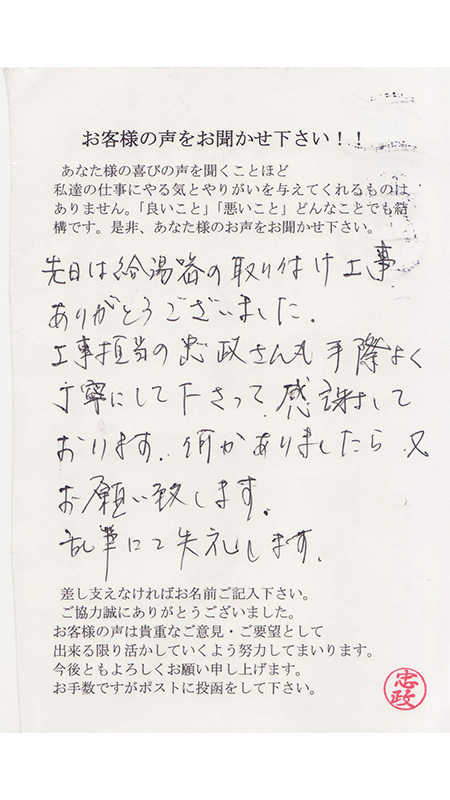 お客様の声をお聞かせ下さい！！
あなた様の喜びの声を聞くことほど
私達の仕事にやる気とやりがいを与えてくれるものは
ありません。「良いこと」「悪いこと」どんなことでも結
構です。是非、あなた様のお声をお聞かせ下さい。
先日は給湯器の取り付け工事
ありがとうございました.
工事担当の忠政さんも手際よく
丁寧にして下さって.感謝して
おります.何かありましたら又
お願い致します。
乱筆にて失礼します.
差し支えなければお名前ご記入下さい。
ご協力誠にありがとうございました。
お客様の声は貴重なご意見・ご要望として
出来る限り活かしていくよう努力してまいります。
今後ともよろしくお願い申し上げます。
お手数ですがポストに投函をして下さい。
忠政